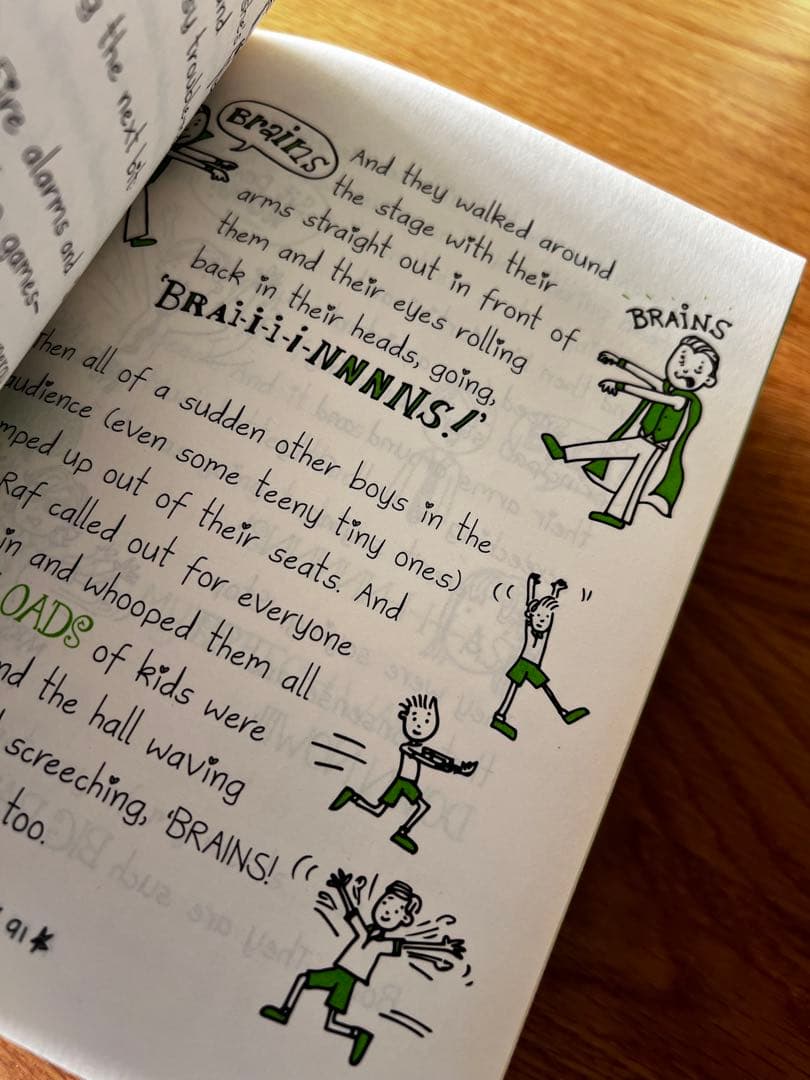 the next
alarms and
games-
Brains
And they walked around
the stage with their
arms straight out in front of
them and their eyes rolling
back in their heads, going,
'BRAi-i-i-i-NNNNS!'
BRAINS
hen all of a sudden other boys in the
audience (even some teeny tiny ones)
mped up out of their seats. And
Raf called out for everyone
in and whooped them all
OADS of kids were
nd the hall waving
screeching, 'BRAINS!
too.
91